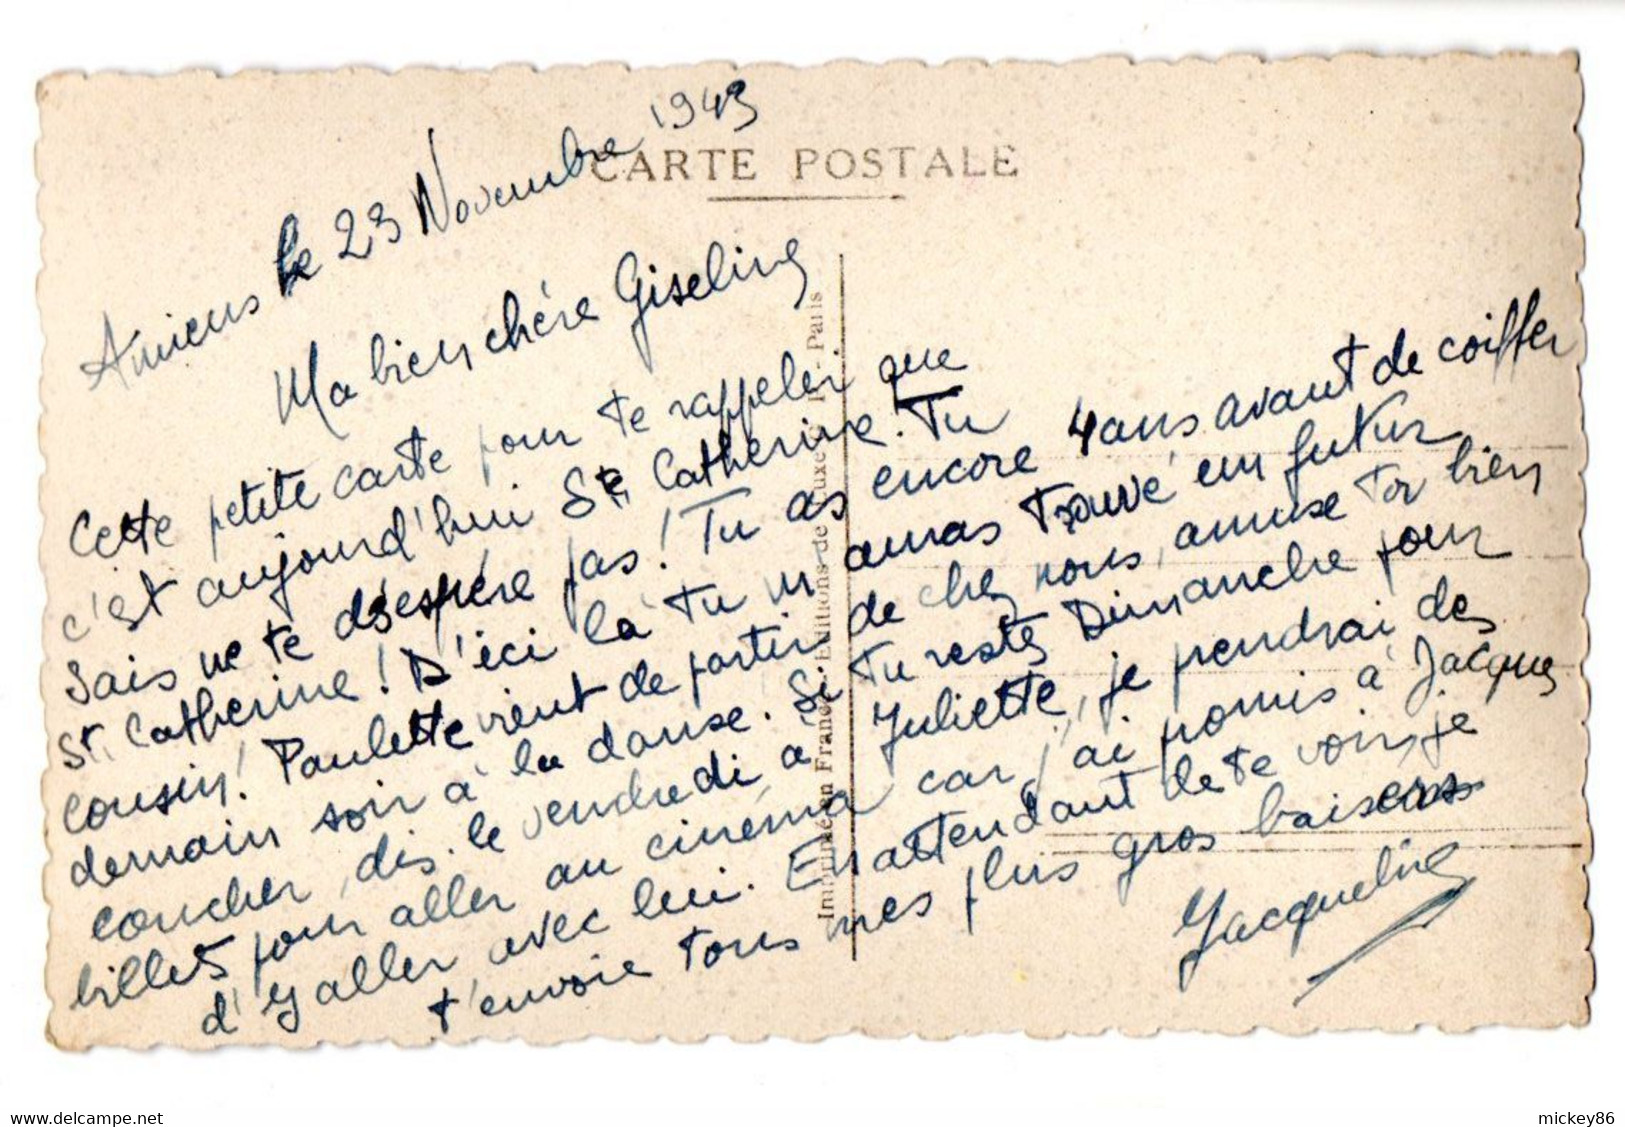 CARTE POSTALE
Amiens le 23 Novembre 1943
Ma bien chère Giseline
Cette petite carte pour te rappeler que
c'est aujourd'hui Ste Catherine. Tu
sais ne te désespère pas! Tu as encore 4 ans avant de coiffer
St. Catherine! D'ici là Tu m auras Trouvé un futur
cousin! Paulette vient de partir de chez nous, amuse Toi bien
demain soir à la danse. Si Tu restes Dimanche pour
coucher, dis. le vendredi à Juliette, je prendrai des
billets pour aller au cinéma car j'ai promis à Jacques
d'y aller avec lui. En attendant de te voir, je
t'envoie Tous mes plus gros baisers
Jacqueline
Imprimé en France. Editions de Luxe - Paris
www.delcampe.net
mickey86